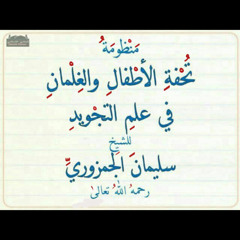 مَنْظُومَةُ
تُحْفَةِ الأَطْفَالِ والغِلْمَانِ
في عِلمِ التَّجْوِيدِ
للشيخ
سليمانَ الجَمْزوريِّ
رحمهُ اللهُ تعالىٰ